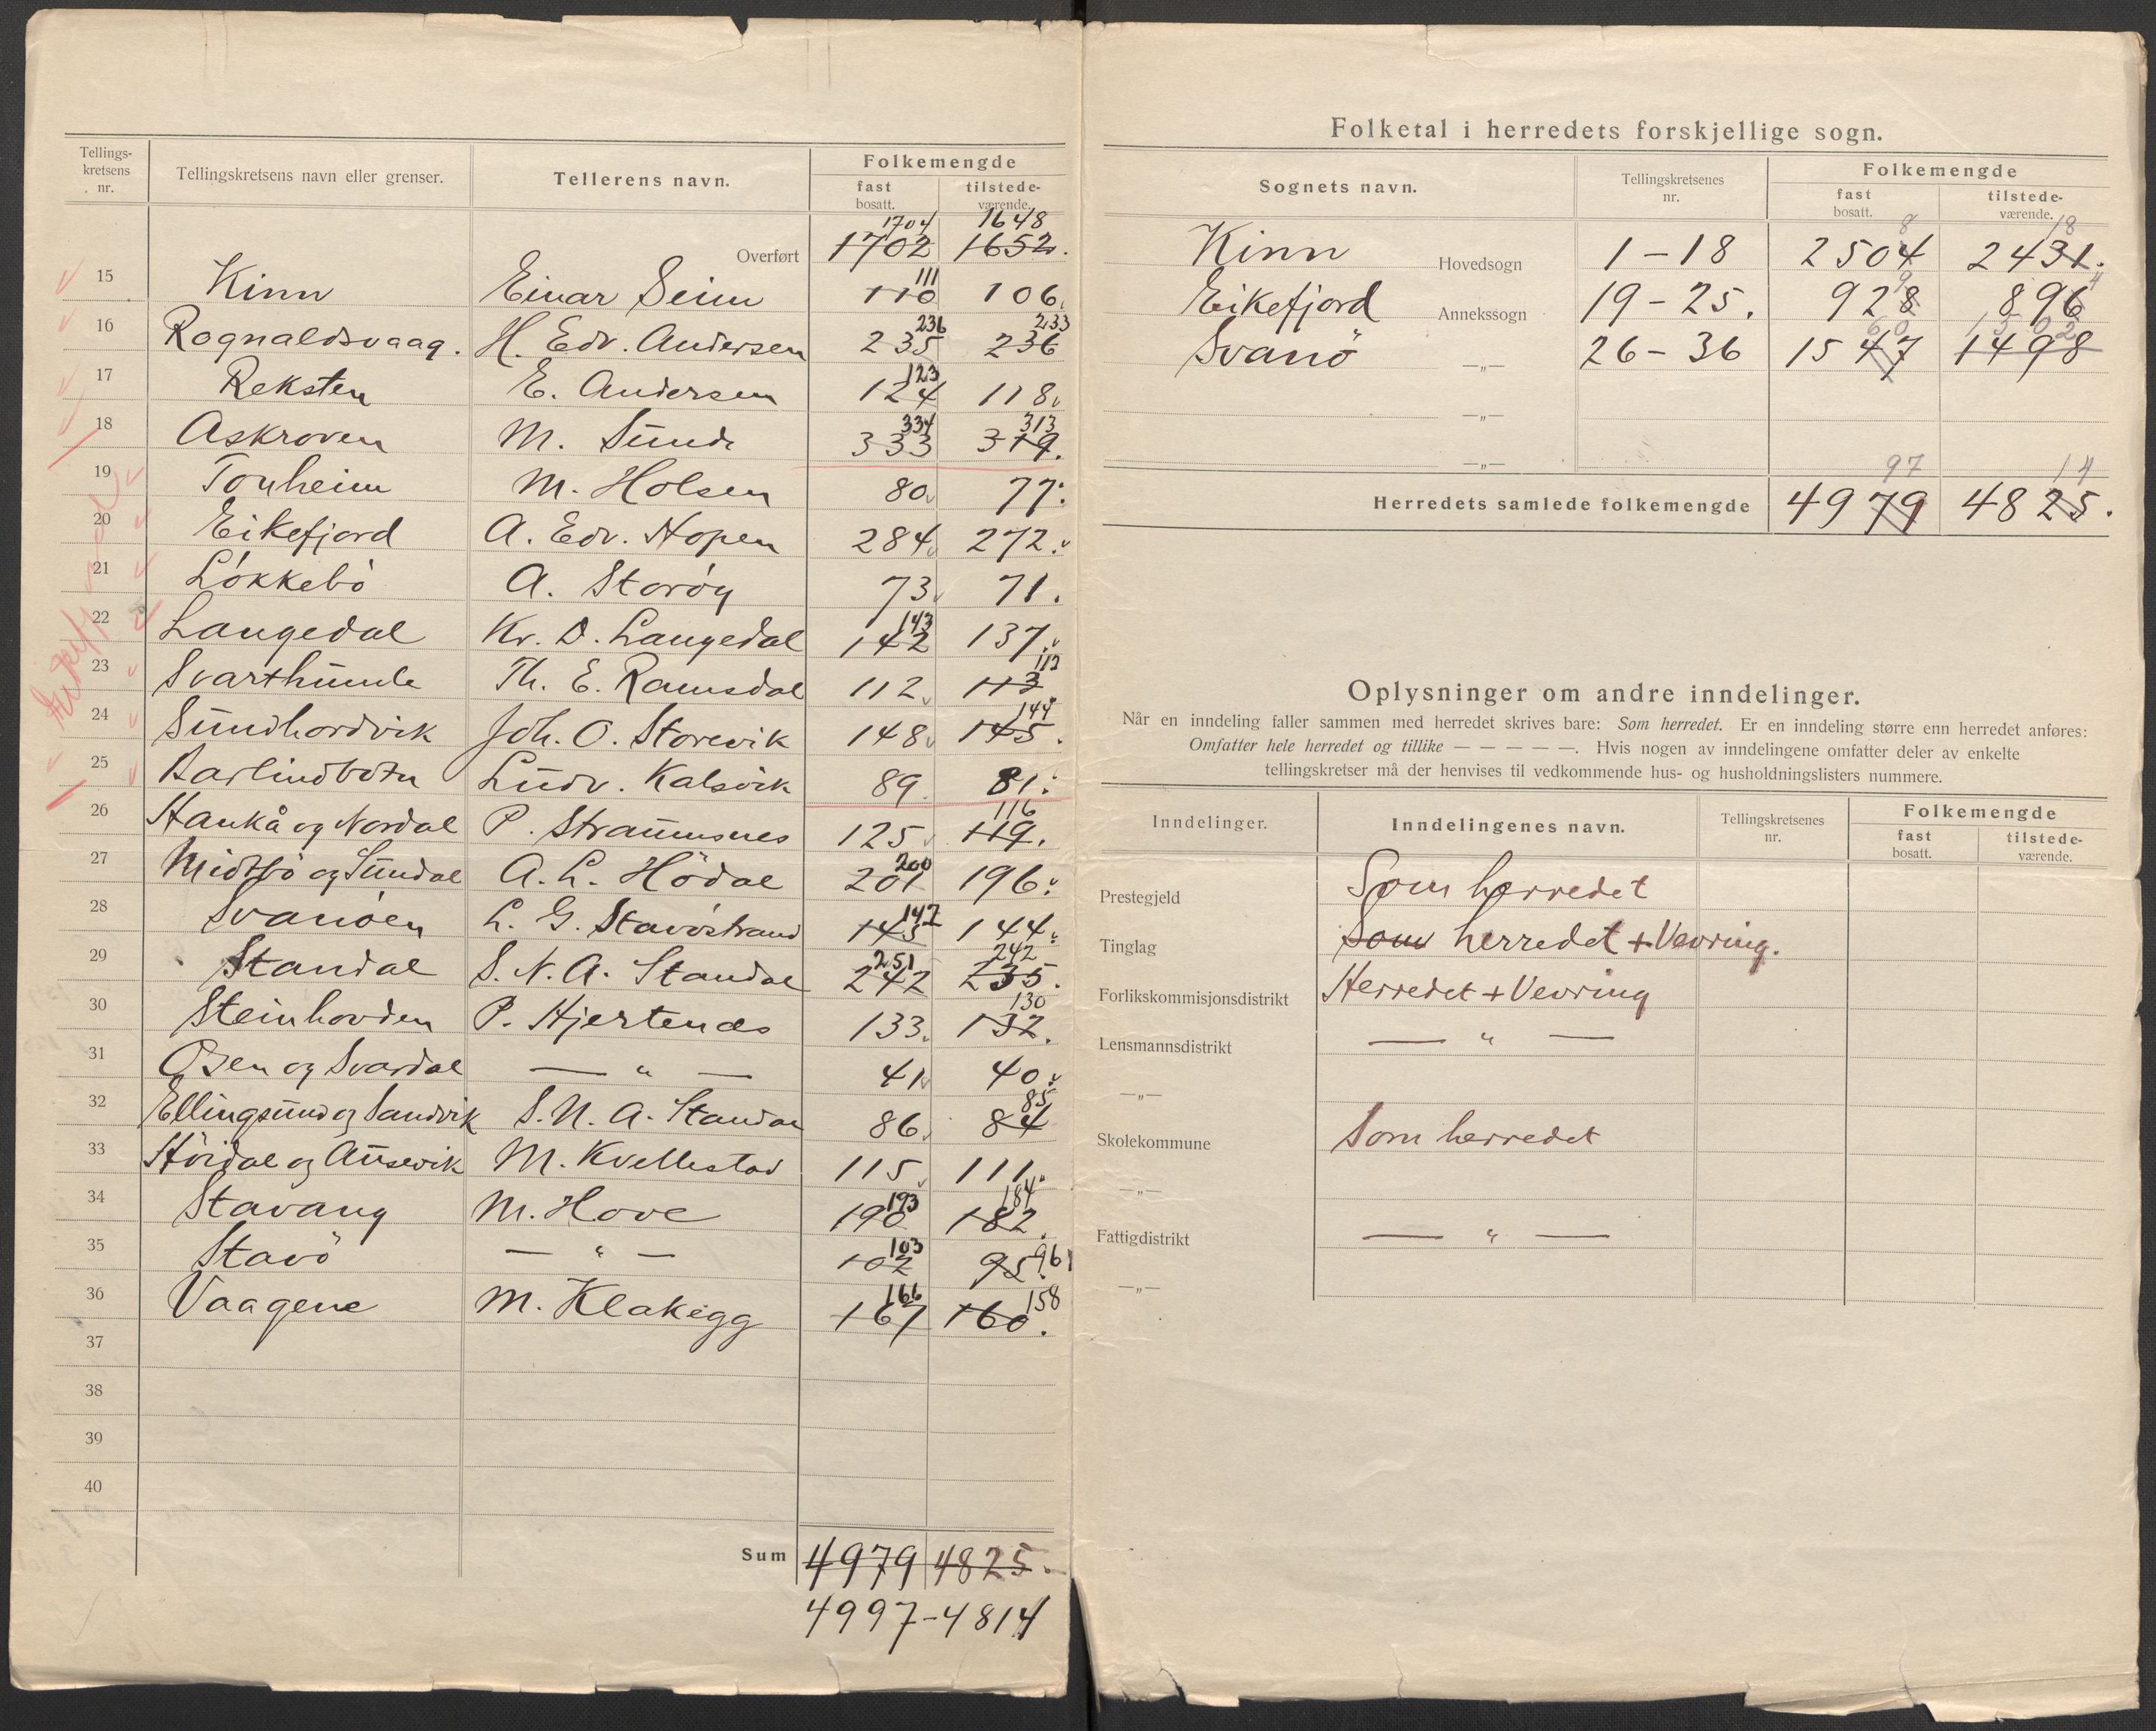 Tellings-
kretsens
nr.
Tellingskretsens navn eller grenser.
Tellerens navn.
Folkemengde
fast
bosatt.
tilstede-
værende.
1704 1648
Overført 1702 1652.
111
15 Kinn Einar Seim 110 106.
236 233
16 Rognaldsvaag. H. Edv. Andersen 235 236
123
17 Reksten E. Andersen 124 118.
334 313
18 Askroven M. Sunde 333 319.
19 Tonheim M. Holsen 80. 77.
20 Eikefjord A. Edv. Hopen 284. 272.
21 Løkkebø A. Storøy 73. 71.
143
22 Langedal Kr. D. Langedal 142 137.
112
23 Svarthumle Th. E. Ramsdal 112. 113.
144
24 Sundhordvik Joh. O. Storevik 148. 145.
25 Barlindbotn Ludv. Kalsvik 89. 81.
116
26 Haukå og Nordal P. Straumsnes 125. 119.
200
27 Midtbø og Sundal A. L. Hödal 201 196.
142
28 Svanøen L. G. Stavöstrand 143 144.
251 242
29 Standal S. N. A. Standal 242 235.
130
30 Steinhovden P. Hjertenæs 133. 132.
31 Osen og Svardal — " — 41. 40.
85
32 Ellingsund og Sandvik S. N. A. Standal 86. 84
33 Höidal og Ausevik M. Kvellestad 115. 111.
193 184
34 Stavang M. Hove 190 182.
103 96
35 Stavö — " — 102 95.
166 158
36 Vaagene M. Klakegg 167 160.
37
38
39
40
Sum 4979 4825.
4997 - 4814
Eikefjord
Folketal i herredets forskjellige sogn.
Sognets navn.
Tellingskretsenes
nr.
Folkemengde
fast
bosatt.
tilstede-
værende.
8 18
Kinn Hovedsogn 1 - 18 2504 2431.
9 4
Eikefjord Annekssogn 19 - 25. 928 896
60 1502
Svanö —„— 26 - 36 1547 1498
—„—
—„—
97 14
Herredets samlede folkemengde 4979 4825.
Oplysninger om andre inndelinger.
Når en inndeling faller sammen med herredet skrives bare: Som herredet. Er en inndeling større enn herredet anføres:
Omfatter hele herredet og tillike — — — — —. Hvis nogen av inndelingene omfatter deler av enkelte
tellingskretser må der henvises til vedkommende hus- og husholdningslisters nummere.
Inndelinger.
Inndelingenes navn.
Tellingskretsenes
nr.
Folkemengde
fast
bosatt.
tilstede-
værende.
Prestegjeld Som herredet
Tinglag Som herredet + Vevring.
Forlikskommisjonsdistrikt Herredet + Vevring
Lensmannsdistrikt — " —
—„—
Skolekommune Som herredet
—„—
Fattigdistrikt — " —
—„—